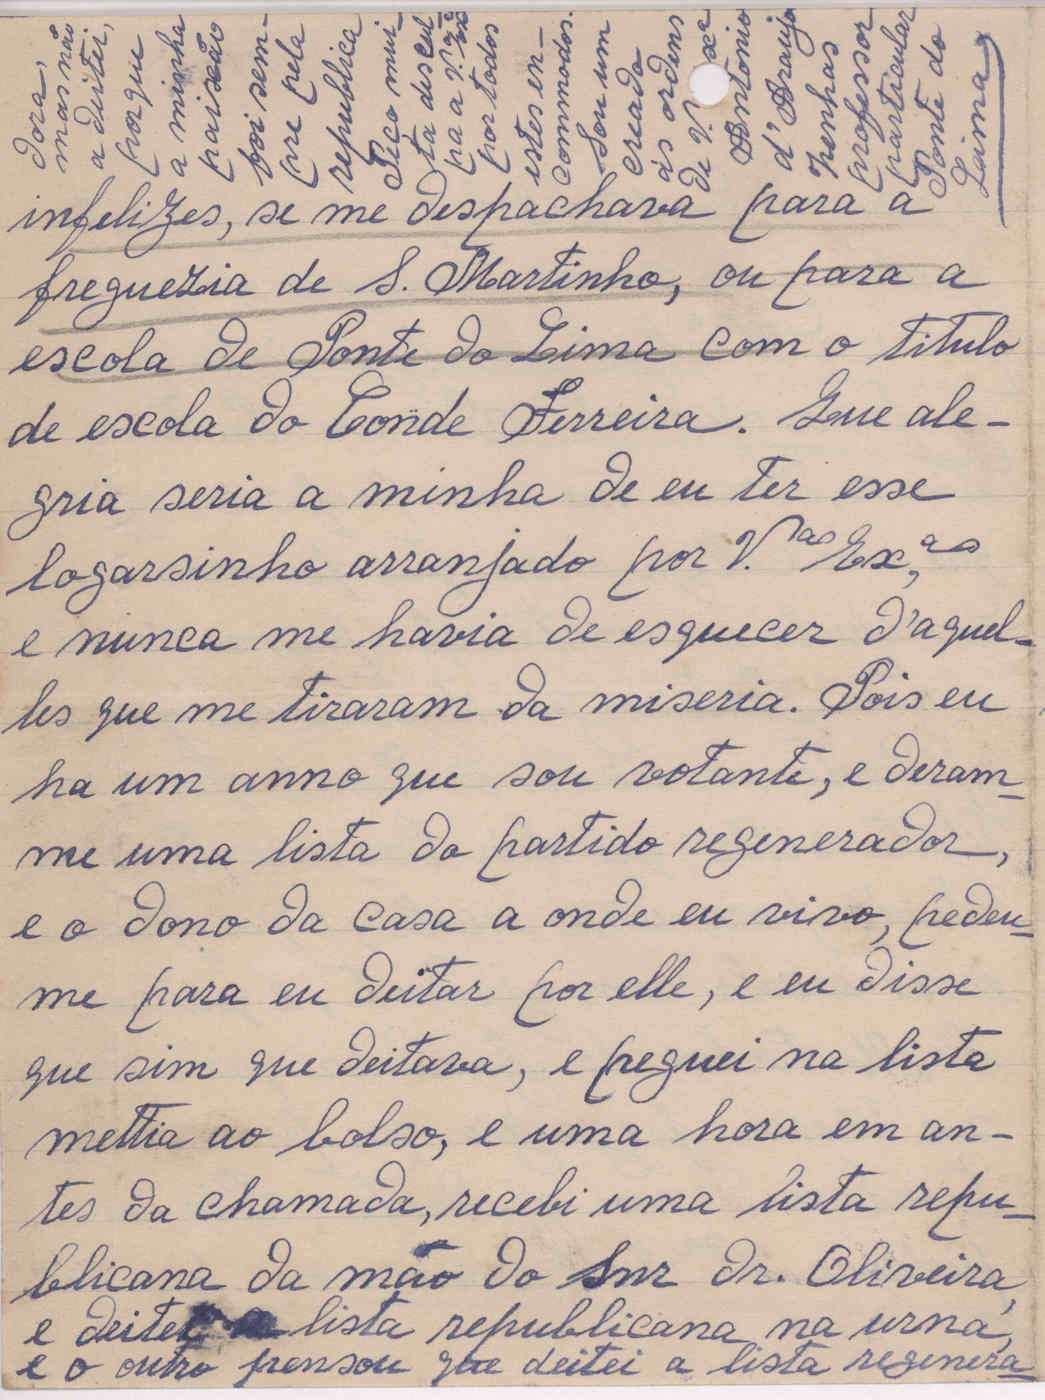 infelizes, se me despachava para a
freguezia de S. Martinho, ou para a
escola de Ponte do Lima com o titulo
de escola do Conde Ferreira. Que ale-
gria seria a minha de eu ter esse
logarsinho arranjado por V.as Ex.as,
e nunca me havia de esquecer d'aquel-
les que me tiraram da miseria. Pois eu
ha um anno que sou votante, e deram-
me uma lista do partido regenerador,
e o dono da casa a onde eu vivo, pedeu-
me para eu deitar por elle, e eu disse
que sim que deitava, e peguei na lista
mettia ao bolso, e uma hora em an-
tes da chamada, recebi uma lista repu-
blicana da mão do Snr dr. Oliveira,
e deitei a lista republicana na urna,
e o outro pensou que deitei a lista regenera-
dora,
mas não
a deitei,
porque
a minha
paixão
foi sem-
pre pela
republica
Peço mui-
ta descul
pa a V.ª Ex.ª
por todos
estes en-
commodos.
Sou um
creado
ás ordens
de V. Exª
Antonio
d'Araujo
Penhas
professor
particular
Ponte do
Lima